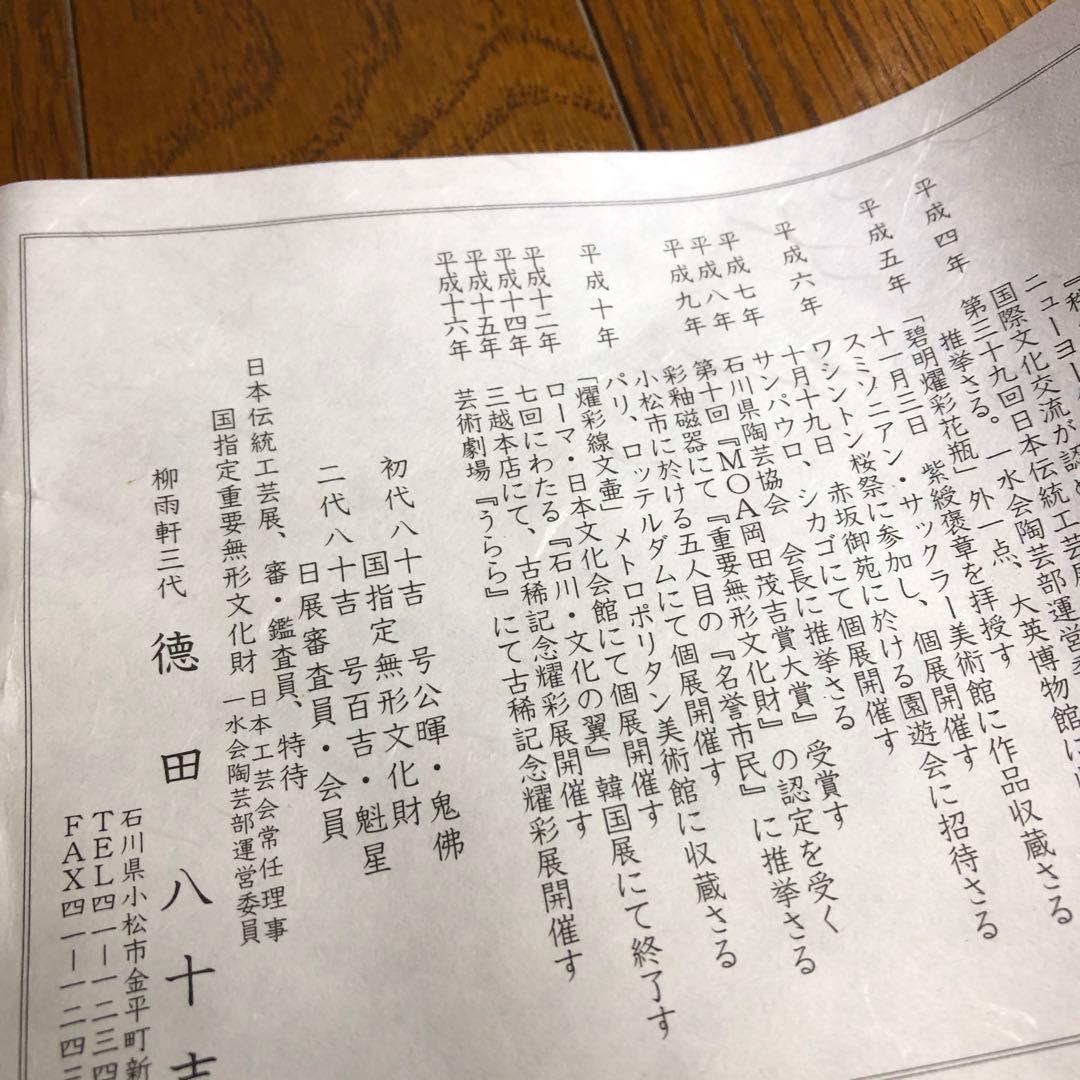 ニューヨー
国際文化交流が認め
平成四年 第三十九回日本伝統工芸展
推挙さる。一水会陶芸部運営委
平成五年 「碧明燿彩花瓶」外一点、大英博物館に
十一月三日 紫綬褒章を拝授す
スミソニアン・サックラー美術館に作品収蔵さる
平成六年 ワシントン桜祭に参加し、個展開催す
十月十九日 赤坂御苑に於ける園遊会に招待さる
平成七年 サンパウロ、シカゴにて個展開催す
平成八年 石川県陶芸協会 会長に推挙さる
平成九年 第十回『MOA岡田茂吉賞大賞』受賞す
彩釉磁器にて『重要無形文化財』の認定を受く
小松市に於ける五人目の『名誉市民』に推挙さる
平成十年 パリ、ロッテルダムにて個展開催す
「燿彩線文壷」メトロポリタン美術館に収蔵さる
平成十二年 ローマ・日本文化会館にて個展開催す
平成十四年 七回にわたる『石川・文化の翼』韓国展にて終了す
平成十五年 三越本店にて、古稀記念耀彩展開催す
平成十六年 芸術劇場『うらら』にて古稀記念耀彩展開催す
初代八十吉 号公暉・鬼佛
国指定無形文化財
二代八十吉 号百吉・魁星
日展審査員・会員
日本伝統工芸展、審・鑑査員、特待
国指定重要無形文化財 日本工芸会常任理事
一水会陶芸部運営委員
柳雨軒三代 徳田八十吉
石川県小松市金平町新
TEL四一ー一二三四
FAX四一ー一二四三